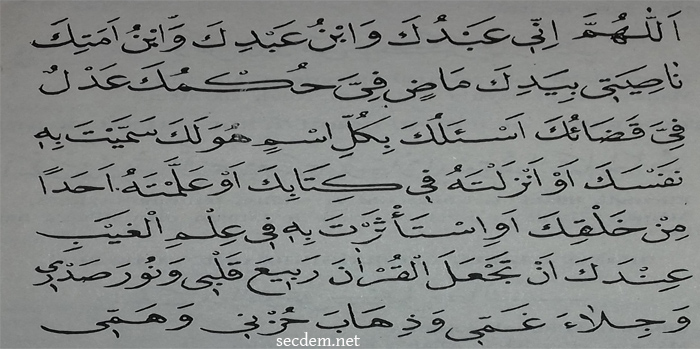 اَللّٰهُمَّ اِنّ۪ي عَبْدُكَ وَابْنُ عَبْدِكَ وَابْنُ اَمَتِكَ
نَاصِيَت۪ي بِيَدِكَ مَاضٍ فِيَّ حُكْمُكَ عَدْلٌ
فِيَّ قَضَائُكَ اَسْئَلُكَ بِكُلِّ اسْمٍ هُوَ لَكَ سَمَّيْتَ بِه۪
نَفْسَكَ اَوْ اَنْزَلْتَهُ ف۪ي كِتَابِكَ اَوْ عَلَّمْتَهُ اَحَدًا
مِنْ خَلْقِكَ اَوِ اسْتَأْثَرْتَ بِه۪ ف۪ي عِلْمِ الْغَيْبِ
عِنْدَكَ اَنْ تَجْعَلَ الْقُرْاٰنَ رَب۪يعَ قَلْب۪ي وَنُورَ صَدْر۪ي
وَجِلَاءَ غَمّ۪ي وَذِهَابَ حُزْن۪ي وَهَمّ۪ي
secdem.net